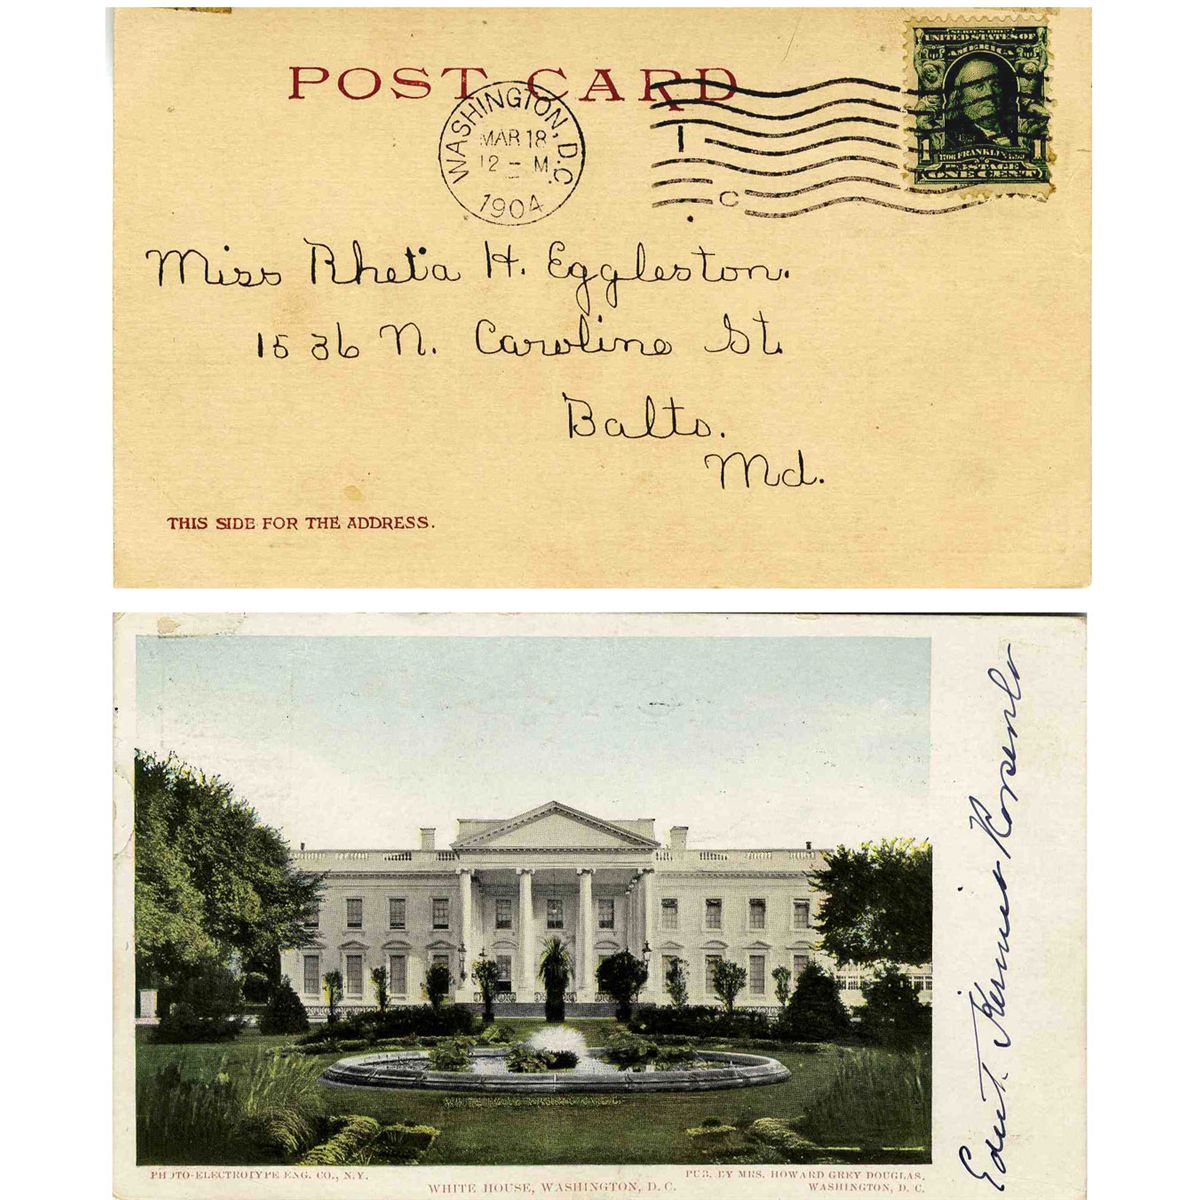 POST CARD
WASHINGTON, D.C.
MAR 18
12 - M
1904
1
C
SERIES 1902
UNITED STATES OF
AMERICA
1706 FRANKLIN 1790
POSTAGE
1 ONE CENT 1
Miss Rheta H. Eggleston.
1536 N. Caroline St.
Balto.
Md.
THIS SIDE FOR THE ADDRESS.
PHOTO-ELECTROTYPE ENG. CO., N.Y.
WHITE HOUSE, WASHINGTON, D. C.
PUB. BY MRS. HOWARD GREY DOUGLAS,
WASHINGTON, D. C.
Edith Kermit